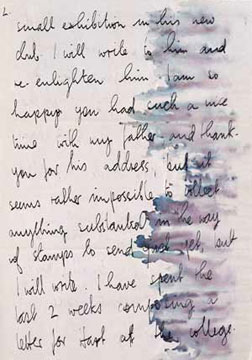 2.
small exhibition in his new
club. I will write to him and
re-enlighten him. I am so
happy you had such a nice
time with my father and thank-
you for his address, but it
seems rather impossible to collect
anything substantial in the way
of stamps to send yet, but
I will write. I have spent the
last 2 weeks composing a
letter for Hart at the college.